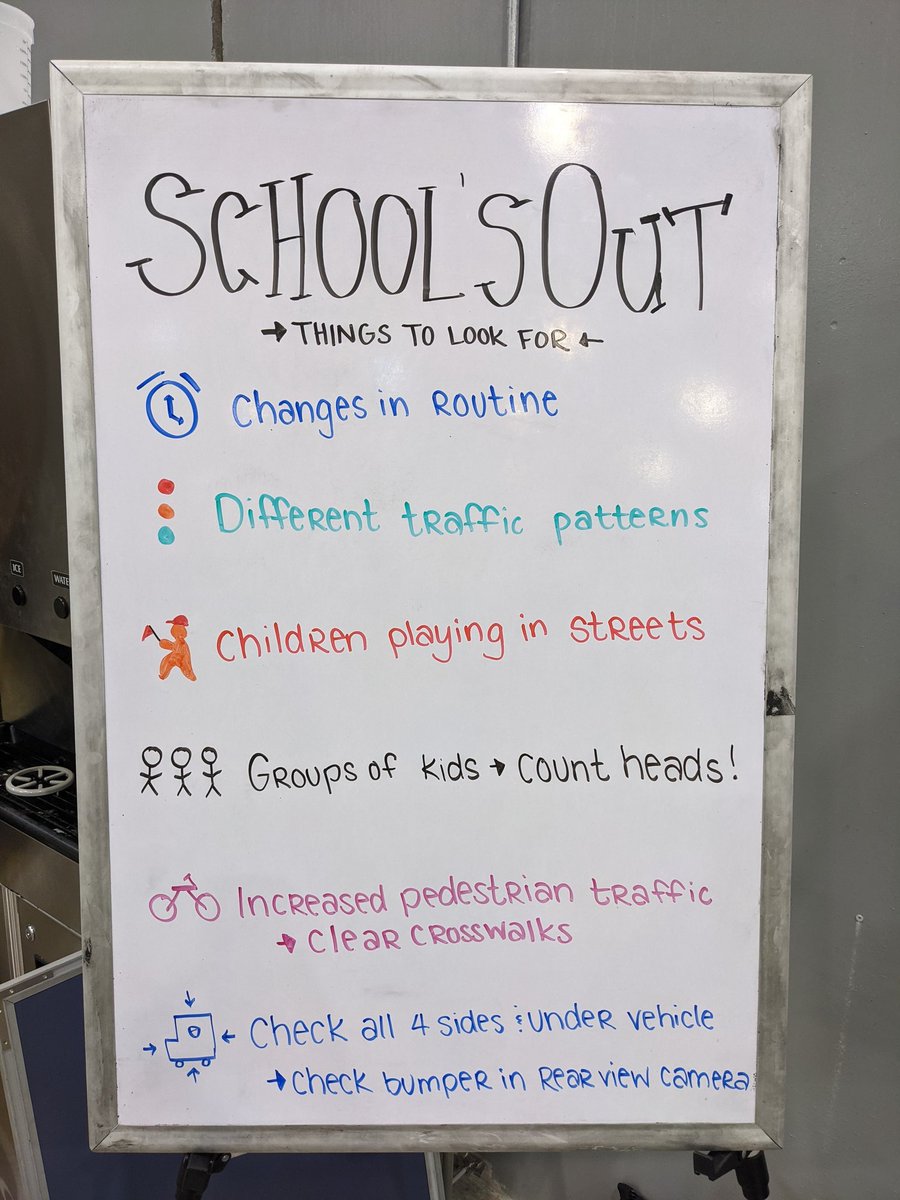 SCHOOL'S OUT
→ THINGS TO LOOK FOR ←
Changes in Routine
Different traffic patterns
Children playing in streets
Groups of kids → Count heads!
Increased pedestrian traffic
→ Clear crosswalks
Check all 4 sides & under vehicle
→ Check bumper in Rear view camera
ICE
WATE